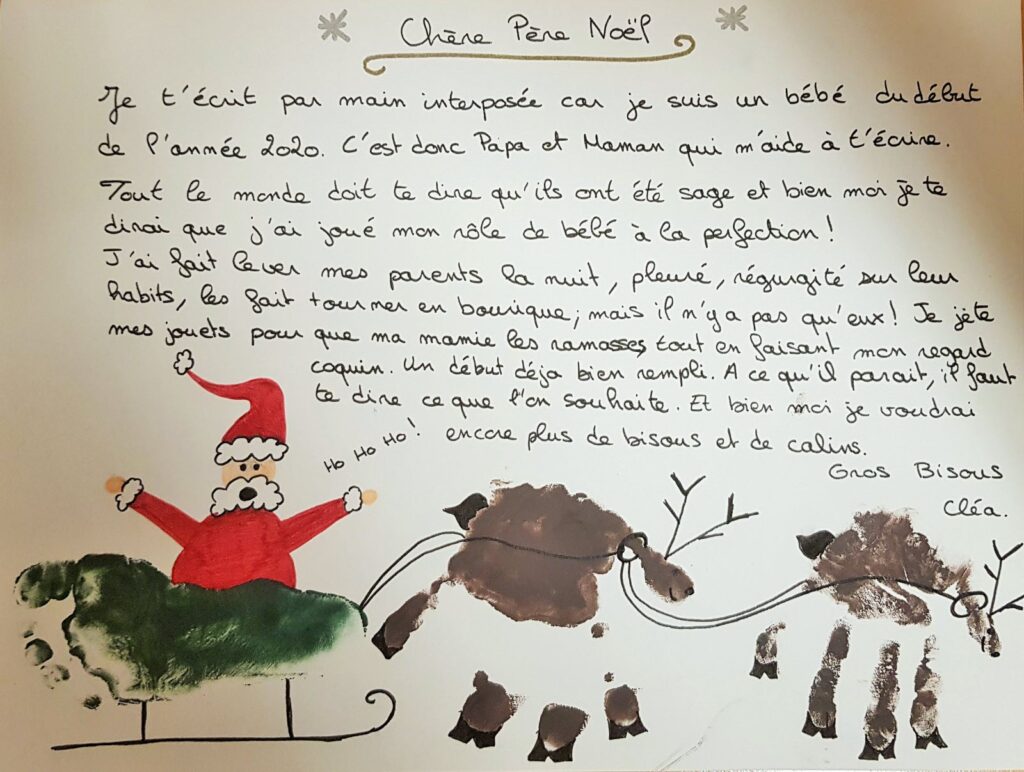 Chère Père Noël
Je t'écrit par main interposée car je suis un bébé du début
de l'année 2020. C'est donc Papa et Maman qui m'aide à t'écrire.
Tout le monde doit te dire qu'ils ont été sage et bien moi je te
dirai que j'ai joué mon rôle de bébé à la perfection !
J'ai fait lever mes parents la nuit, pleuré, régurgité sur leur
habits, les fait tourner en bourique, mais il n'y a pas qu'eux ! Je jète
mes jouets pour que ma mamie les ramasses tout en faisant mon regard
coquin. Un début déja bien rempli. A ce qu'il parait, il faut
te dire ce que l'on souhaite. Et bien moi je voudrai
encore plus de bisous et de calins.
Ho Ho Ho !
Gros Bisous
Cléa.